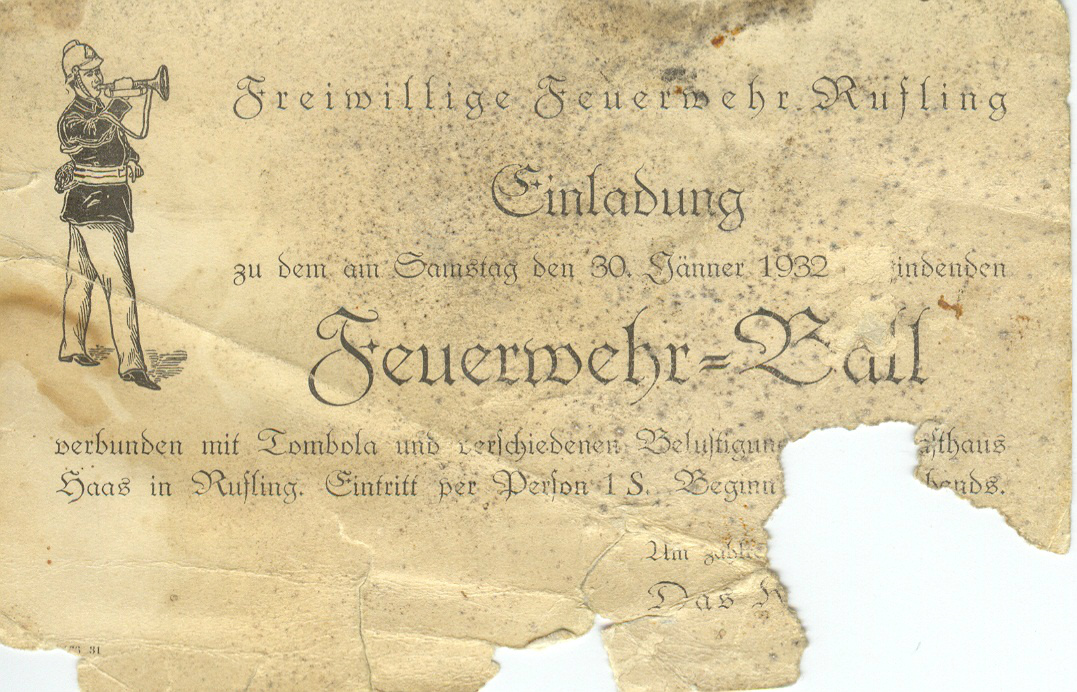 Freiwillige Feuerwehr Rufling
Einladung
zu dem am Samstag den 30. Jänner 1932 indenden
Feuerwehr-Ball
verbunden mit Tombola und verschiedenen Belustigung sthaus
Haas in Rufling. Eintritt per Person 1 S. Beginn bends.
Um
Das
31